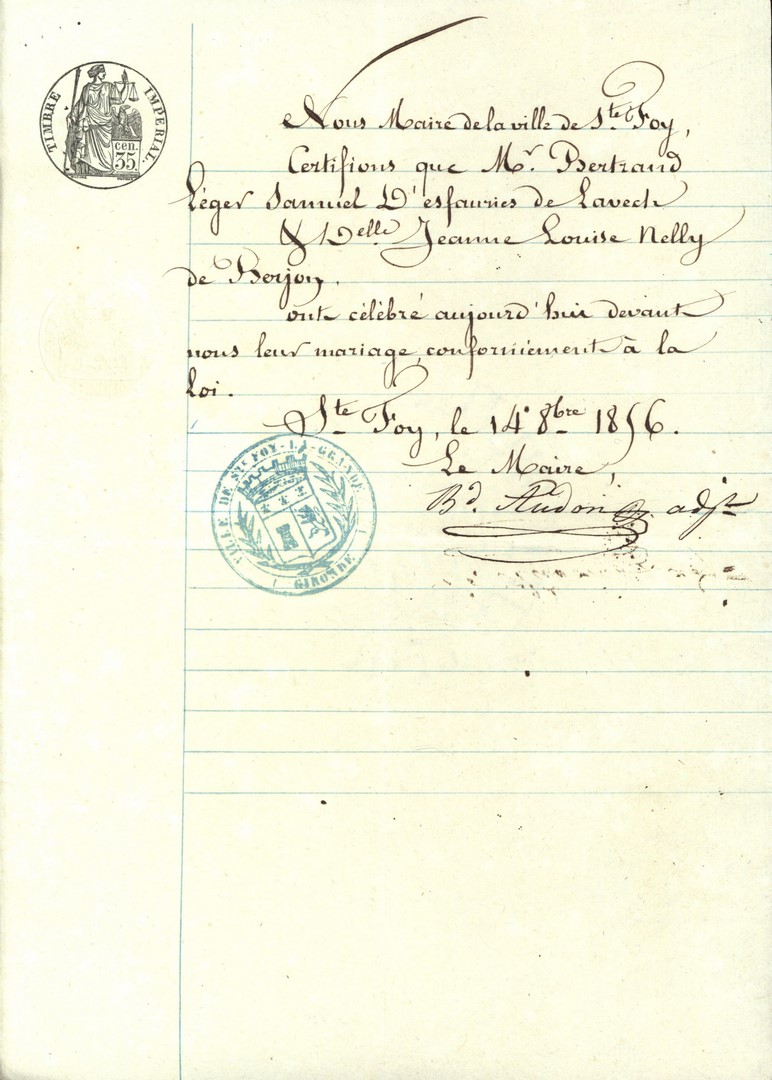 TIMBRE IMPERIAL.
cen.
35
Nous Maire de la ville de Ste Foy,
Certifions que Mr. Bertrand
Léger Samuel D'esfauries de Lavech
& Delle Jeanne Louise Nelly
de Borjon,
ont célébré aujourd'hui devant
nous leur mariage, conformément à la
Loi.
Ste Foy, le 14 8bre 1856.
Le Maire,
Bd. Audon adjt
VILLE DE STE FOY-LA-GRANDE
GIRONDE